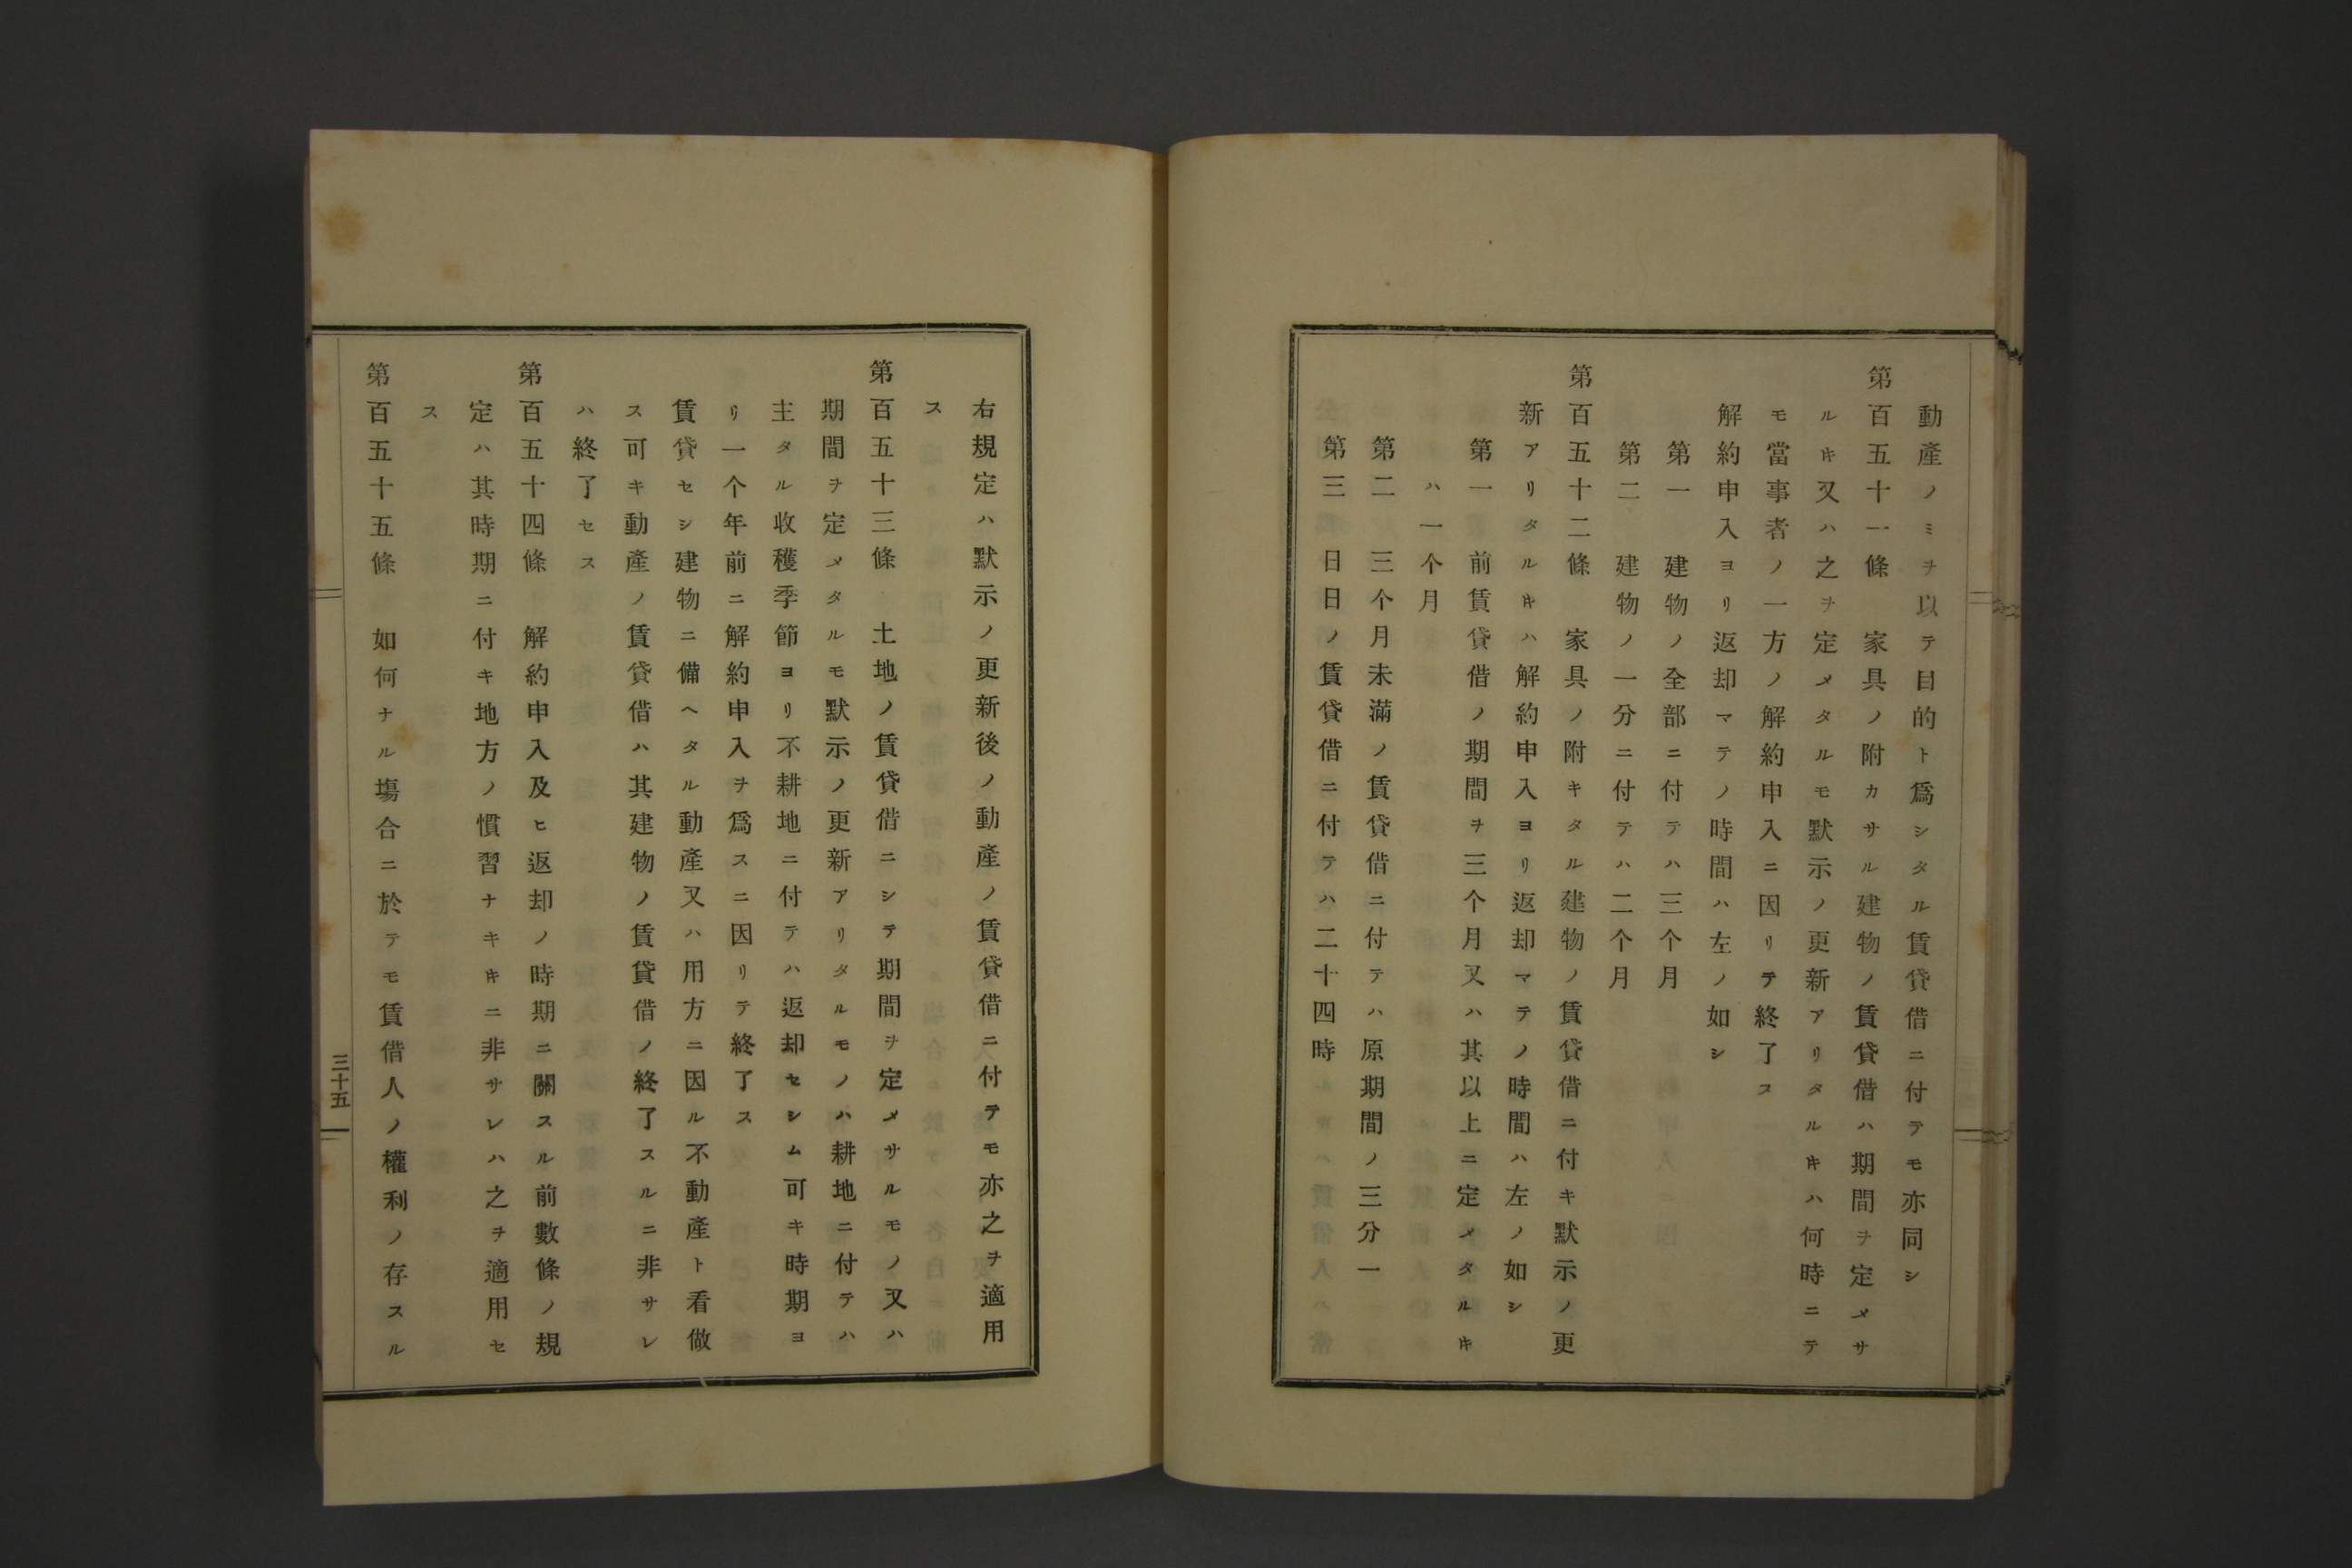 動產ノミヲ以テ目的ト爲シタル賃貸借ニ付テモ亦同シ
第百五十一條　家具ノ附カサル建物ノ賃貸借ハ期間ヲ定メサ
ルキ又ハ之ヲ定メタルモ默示ノ更新アリタルキハ何時ニテ
モ當事者ノ一方ノ解約申入ニ因リテ終了ス
解約申入ヨリ返却マテノ時間ハ左ノ如シ
第一　建物ノ全部ニ付テハ三个月
第二　建物ノ一分ニ付テハ二个月
第百五十二條　家具ノ附キタル建物ノ賃貸借ニ付キ默示ノ更
新アリタルキハ解約申入ヨリ返却マテノ時間ハ左ノ如シ
第一　前賃貸借ノ期間ヲ三个月又ハ其以上ニ定メタルキ
ハ一个月
第二　三个月未滿ノ賃貸借ニ付テハ原期間ノ三分一
第三　日日ノ賃貸借ニ付テハ二十四時
右規定ハ默示ノ更新後ノ動產ノ賃貸借ニ付テモ亦之ヲ適用
ス
第百五十三條　土地ノ賃貸借ニシテ期間ヲ定メサルモノ又ハ
期間ヲ定メタルモ默示ノ更新アリタルモノハ耕地ニ付テハ
主タル收穫季節ヨリ不耕地ニ付テハ返却セシム可キ時期ヨ
リ一个年前ニ解約申入ヲ爲スニ因リテ終了ス
賃貸セシ建物ニ備ヘタル動產又ハ用方ニ因ル不動產ト看做
ス可キ動產ノ賃貸借ハ其建物ノ賃貸借ノ終了スルニ非サレ
ハ終了セス
第百五十四條　解約申入及ヒ返却ノ時期ニ關スル前數條ノ規
定ハ其時期ニ付キ地方ノ慣習ナキキニ非サレハ之ヲ適用セ
ス
第百五十五條　如何ナル塲合ニ於テモ賃借人ノ權利ノ存スル
三十五